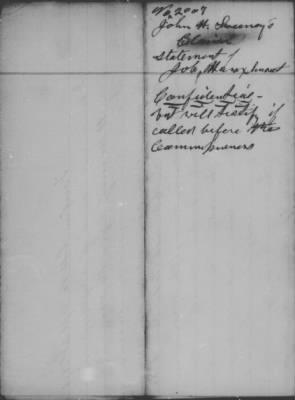 No 2007
John H. Sweeney's
Claim
Statement of
Job,
Confidential -
but will testify if
called before the
Commissioners